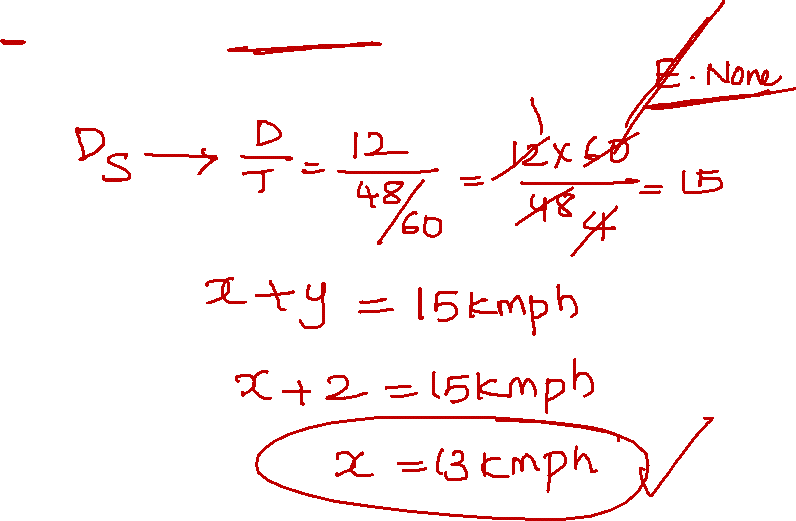 E. None
Ds → D/T = 12/(48/60) = 12x60/48 4 = 15
1
x+y = 15kmph
x+2 = 15kmph
x = 13kmph